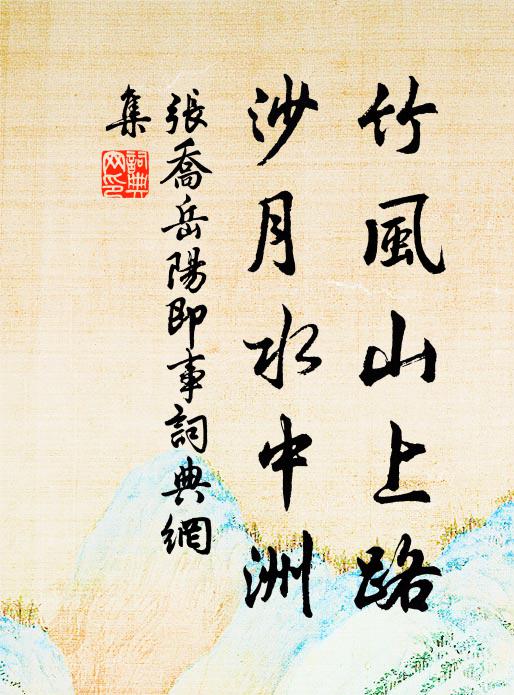 竹風山上路
沙月水中洲
張喬岳陽即事詞典網
集
詞典
网印